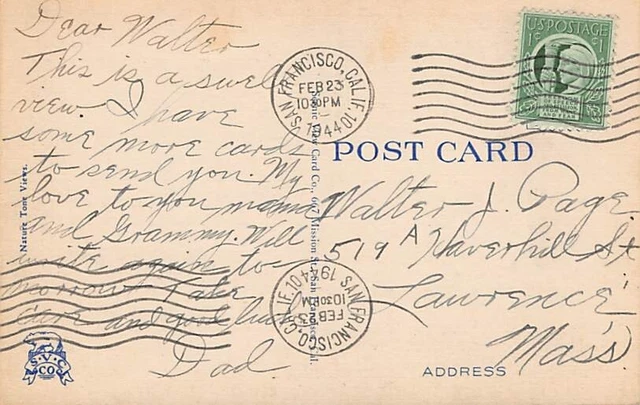 Dear Walter
This is a swell
view I have
some more cards
to send you. My
love to you mama
and Grammy. Will
write again to
morrow Take
care and good luck
Dad.
Nature Tone Views.
Scenic View Card Co., 667 Mission St., San Francisco, Cal.
SAN FRANCISCO, CALIF. 10
FEB 23
10 30 PM
1944
U.S. POSTAGE
1¢ 1¢
POST CARD
Walter J. Page
519 A Haverhill St
Lawrence
Mass
ADDRESS
SAN FRANCISCO, CALIF. 10
FEB 23
10 30 PM
1944
S.V.C.
CO